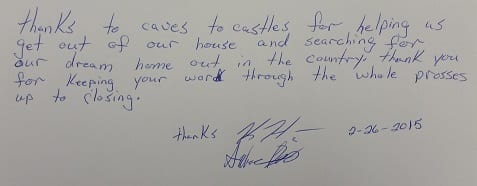 thanks to caves to castles for helping us
get out of our house and searching for
our dream home out in the country. thank you
for keeping your word through the whole prosses
up to closing.
thanks 2-26-2015